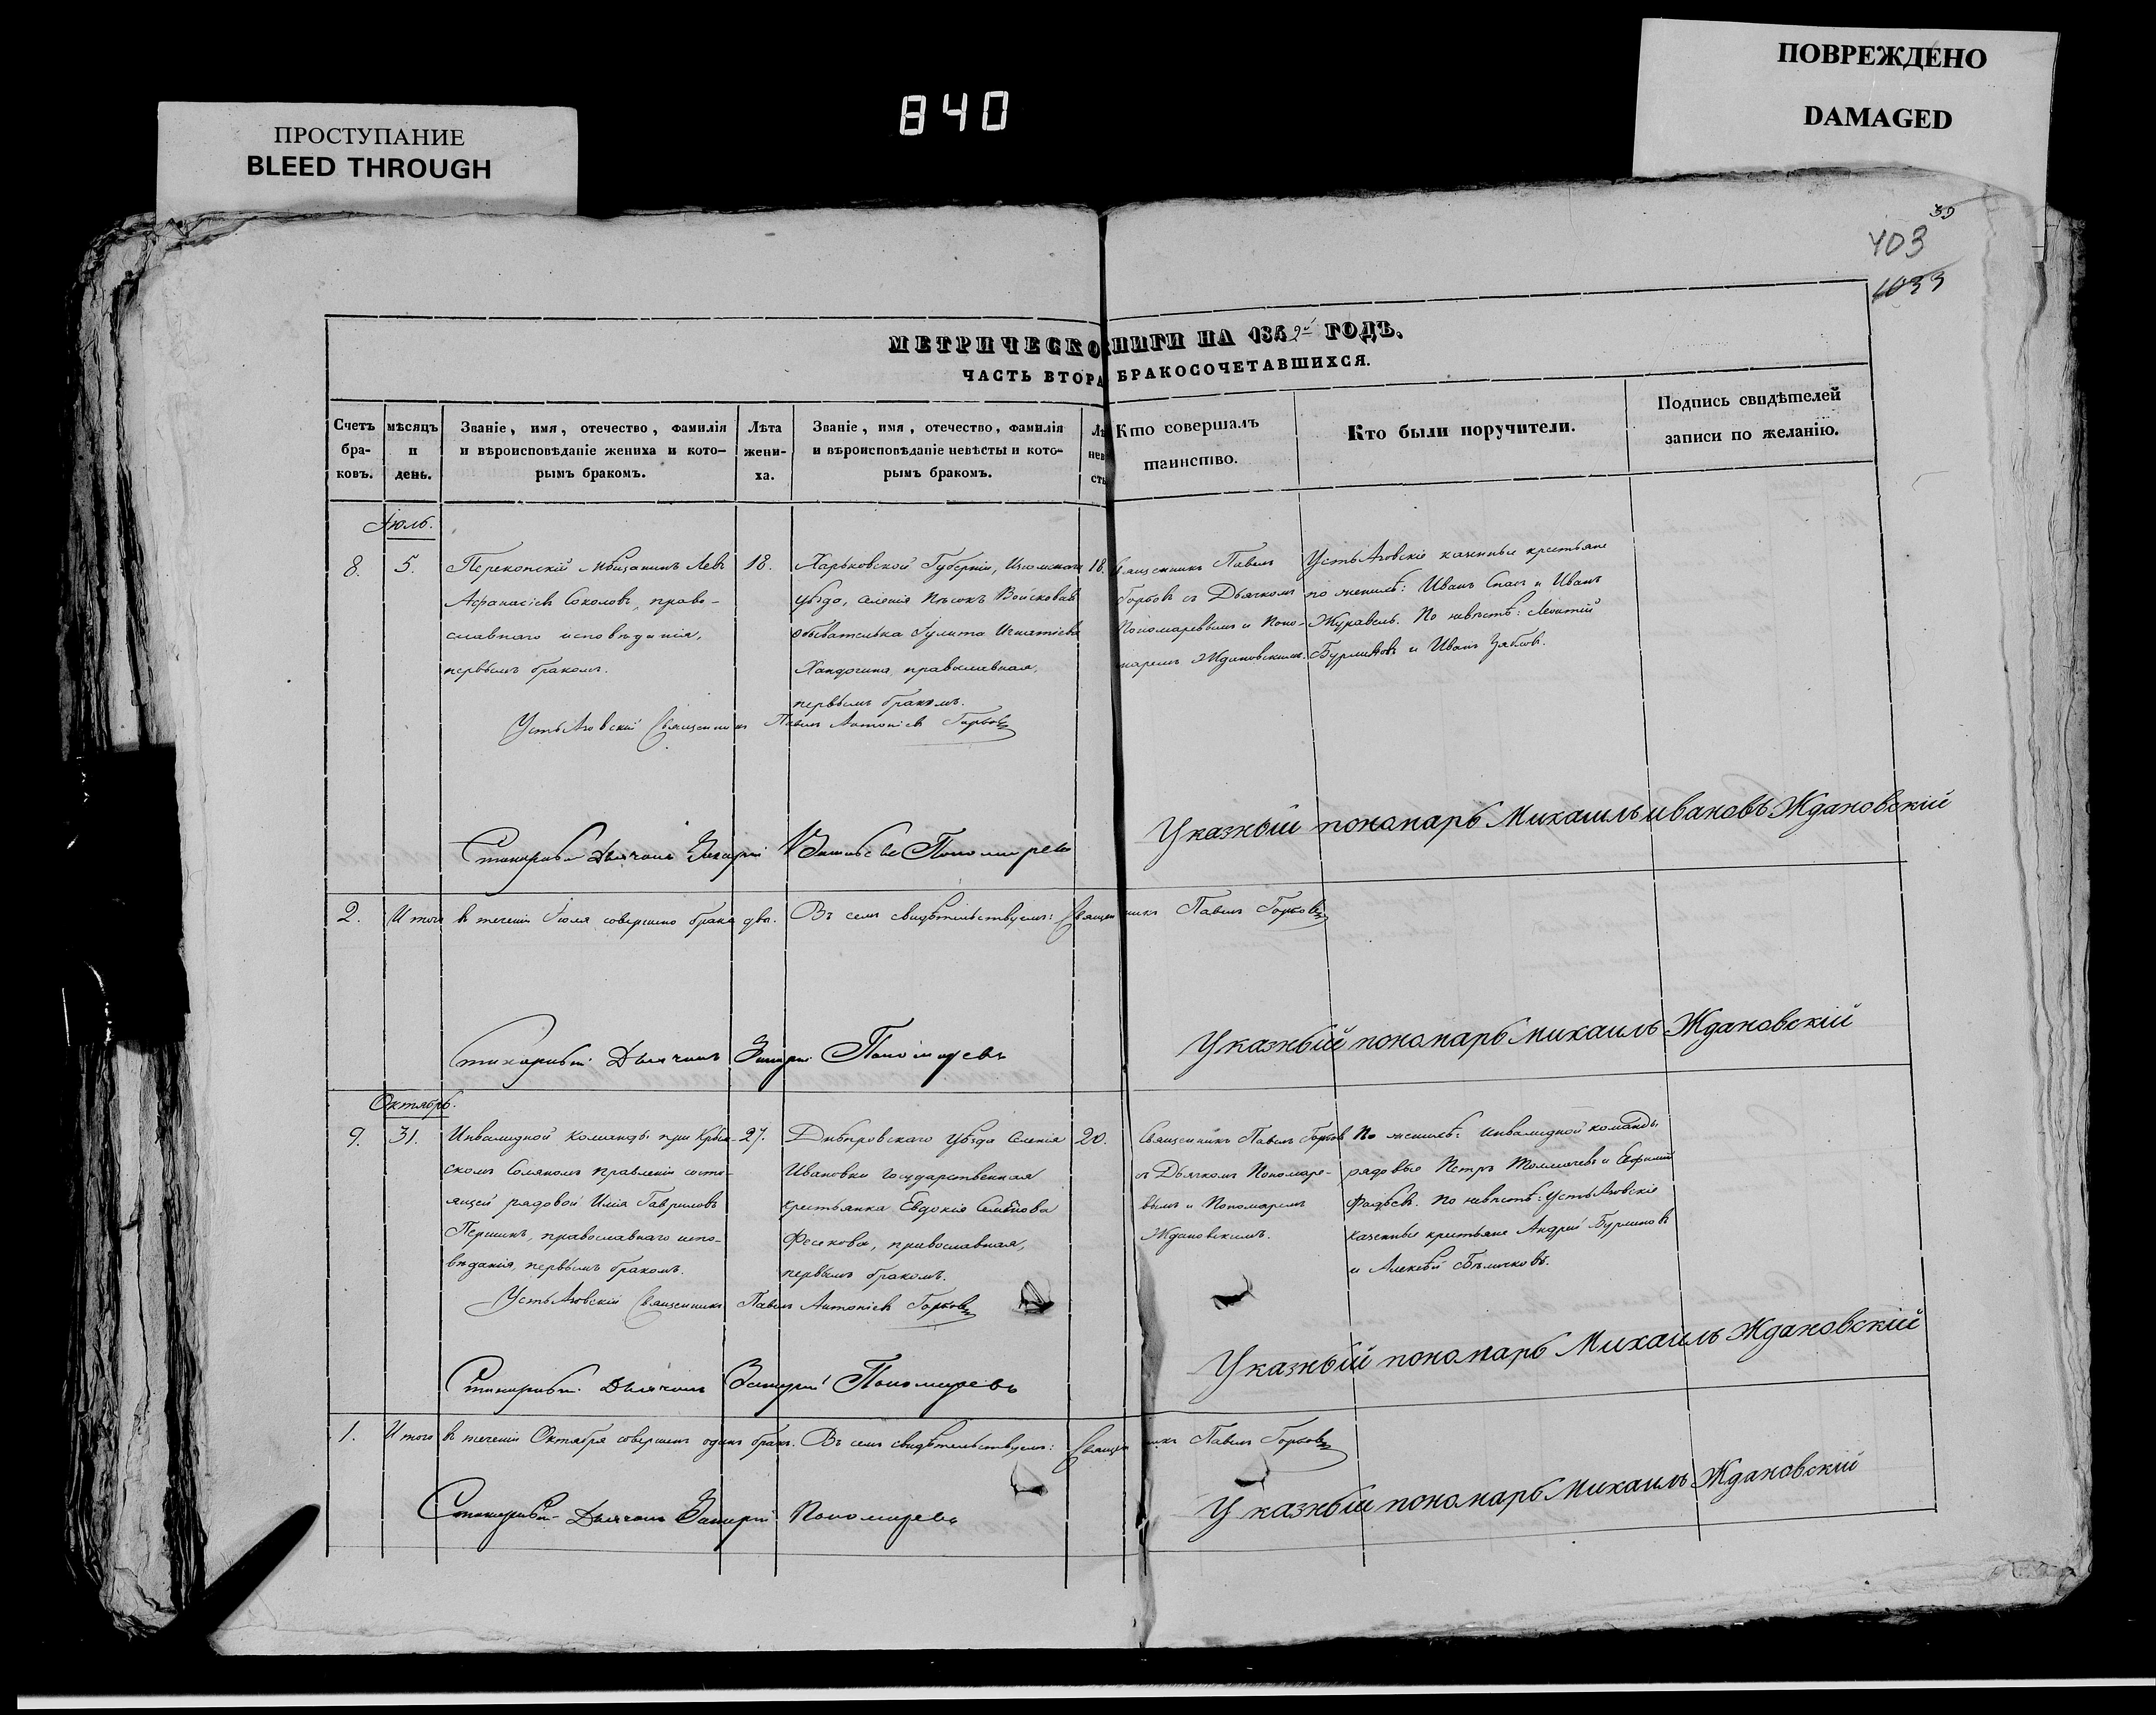 ПОВРЕЖДЕНО
DAMAGED
840
ПРОСТУПАНИЕ
BLEED THROUGH
39
403
1033
МЕТРИЧЕСКО НИГИ НА 1849й ГОДЪ.
ЧАСТЬ ВТОРА БРАКОСОЧЕТАВШИХСЯ.
Счетъ бра- ковъ.
мѣсяцъ и день.
Званіе, имя, отечество, фамилія
и вѣроисповѣданіе жениха и кото-
рымъ бракомъ.
Лѣта жени- ха.
Званіе, имя, отечество, фамилія
и вѣроисповѣданіе невѣсты и кото-
рымъ бракомъ.
Лѣ нев сть
Кто совершалъ
таинство.
Кто были поручители.
Подпись свидѣтелей
записи по желанію.
Іюль.
8.
5.
Перекопскій Мѣщанинъ Левъ
Афанасіевъ Соколовъ, право-
славнаго исповѣданія,
первымъ бракомъ.
18.
Харьковской Губерніи, Изюмскаго
уѣзда, селенія Пѣсокъ Войсковая
обывателька Гулита Игнатіева
Хандогина, православная,
первымъ бракомъ.
18.
Священникъ Павелъ
Горбовъ съ Дьячкомъ
Пономаревымъ и Поно-
маремъ Ждановскимъ.
УстьАзовскіе казенные крестьяне
по женихѣ: Иванъ Спасъ и Иванъ
Журавель. По невѣстѣ: Леонтій
Бурлиновъ и Иванъ
УстьАзовскій Священникъ Павелъ Антоніевъ Горбовъ
Стихарный Дьячокъ Захарій Пономаревъ
Указный пономарь Михаилъ ивановъ Ждановскій
2.
Итого въ теченіи Іюля совершено брака два. Въ семъ свидѣтельствуемъ: Священникъ Павелъ Горбовъ
Стихарный Дьячокъ Захарій Пономаревъ
Указный пономарь михаилъ Ждановскій
Октябрь.
9.
31.
Инвалидной команды при Крым-
скомъ Соляномъ Правленіи состо-
ящей рядовой Илія Гавриловъ
Першинъ, православнаго испо-
вѣданія, первымъ бракомъ.
27.
Днѣпровскаго уѣзда Селенія
Ивановки государственная
крестьянка Евдокія Семенова
Фесенкова, православная,
первымъ бракомъ.
20.
Священникъ Павелъ Горбовъ
съ Дьячкомъ Пономаре-
вымъ и Пономаремъ
Ждановскимъ.
По женихѣ: инвалидной команды
рядовые Петръ Толмачевъ и Ефимій
Фадѣевъ. По невѣстѣ: УстьАзовскіе
казенные крестьяне Андрей Бурлиновъ
и Алексѣй Бѣличковъ.
УстьАзовскій Священникъ Павелъ Антоніевъ Горбовъ
Стихарный Дьячокъ Захарій Пономаревъ
Указный пономарь Михаилъ Ждановскій
1.
Итого въ теченіи Октября совершенъ одинъ бракъ. Въ семъ свидѣтельствуемъ: Священникъ Павелъ Горбовъ
Стихарный Дьячокъ Захарій Пономаревъ
Указный пономарь Михаилъ Ждановскій